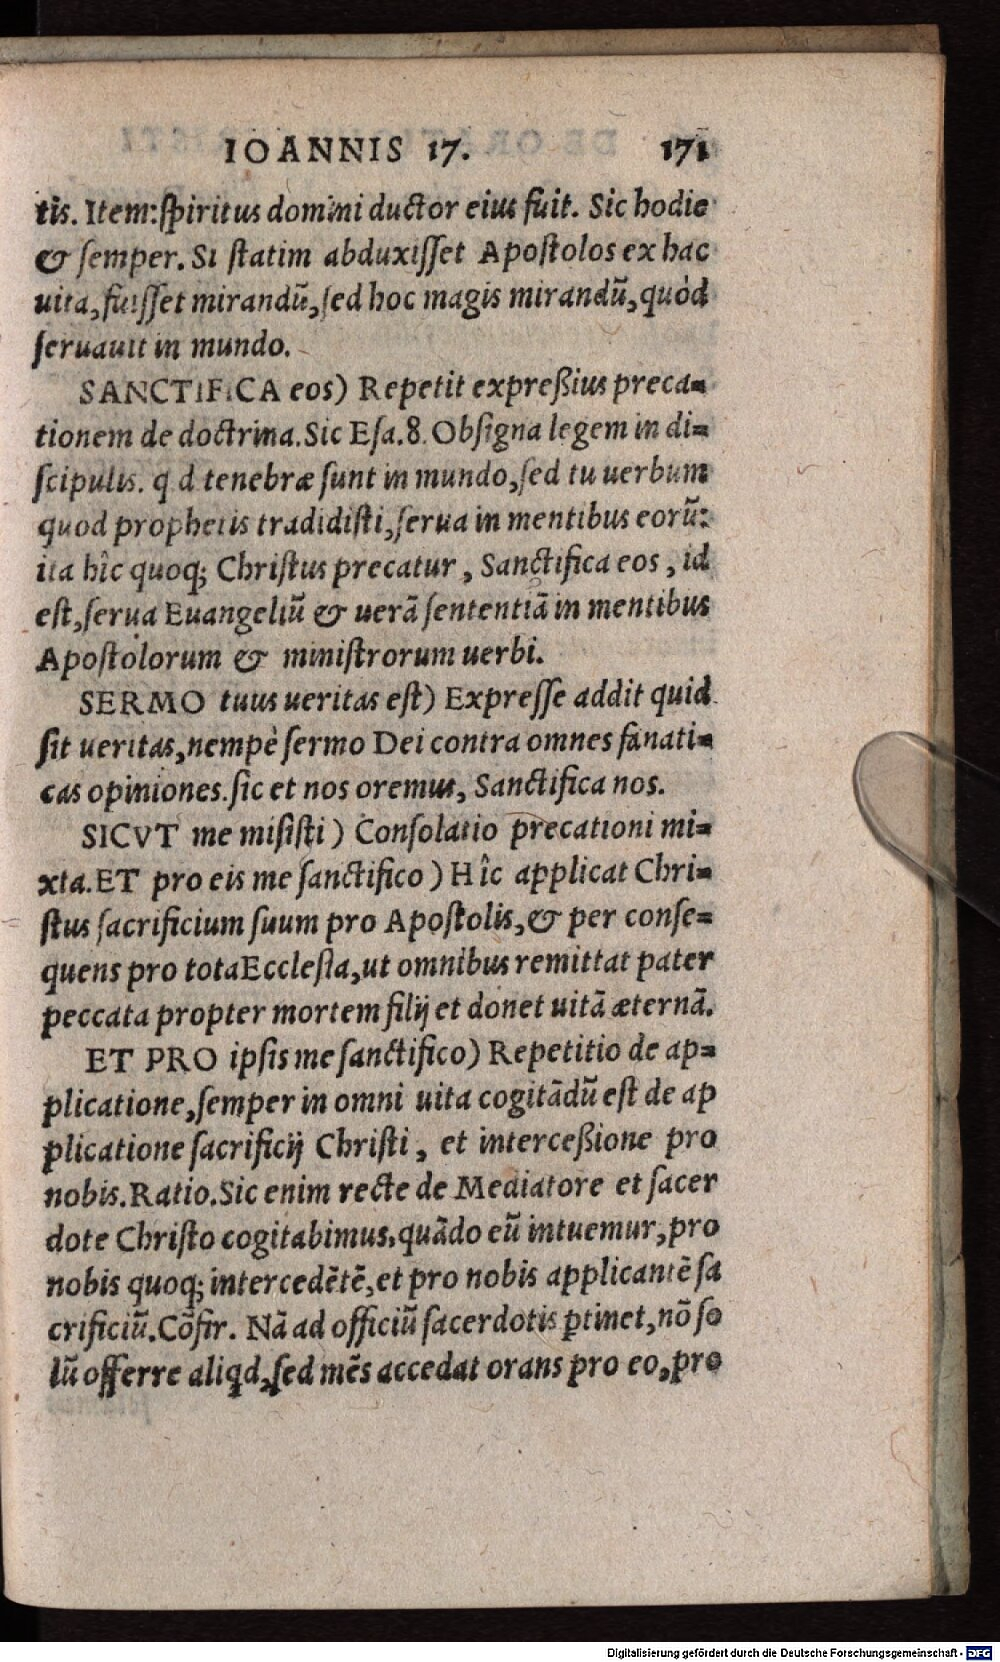 IOANNIS 17. 171
tis. Item: spiritus domini ductor eius fuit. Sic hodie
& semper. Si statim abduxisset Apostolos ex hac
uita, fuisset mirandū, sed hoc magis mirandū, quòd
seruauit in mundo.
SANCTIFICA eos) Repetit expreßius preca=
tionem de doctrina. Sic Esa. 8. Obsigna legem in di=
scipulis. q d tenebræ sunt in mundo, sed tu uerbum
quod prophetis tradidisti, serua in mentibus eorū:
ita hîc quoq; Christus precatur, Sanctifica eos, id
est, serua Euangeliū & uerā sententiā in mentibus
Apostolorum & ministrorum uerbi.
SERMO tuus ueritas est) Expresse addit quid
sit ueritas, nempè sermo Dei contra omnes fanati=
cas opiniones. sic et nos oremus, Sanctifica nos.
SICVT me misisti) Consolatio precationi mi=
xta. ET pro eis me sanctifico) Hîc applicat Chri=
stus sacrificium suum pro Apostolis, & per conse=
quens pro tota Ecclesia, ut omnibus remittat pater
peccata propter mortem filij et donet uitā æternā.
ET PRO ipsis me sanctifico) Repetitio de ap=
plicatione, semper in omni uita cogitādū est de ap
plicatione sacrificij Christi, et interceßione pro
nobis. Ratio. Sic enim recte de Mediatore et sacer
dote Christo cogitabimus, quādo eū intuemur, pro
nobis quoq; intercedētē, et pro nobis applicantē sa
crificiū. Cōfir. Nā ad officiū sacerdotis ꝑtinet, nō so
lū offerre aliqd, sed mēs accedat orans pro eo, pro
Digitalisierung gefördert durch die Deutsche Forschungsgemeinschaft - DFG